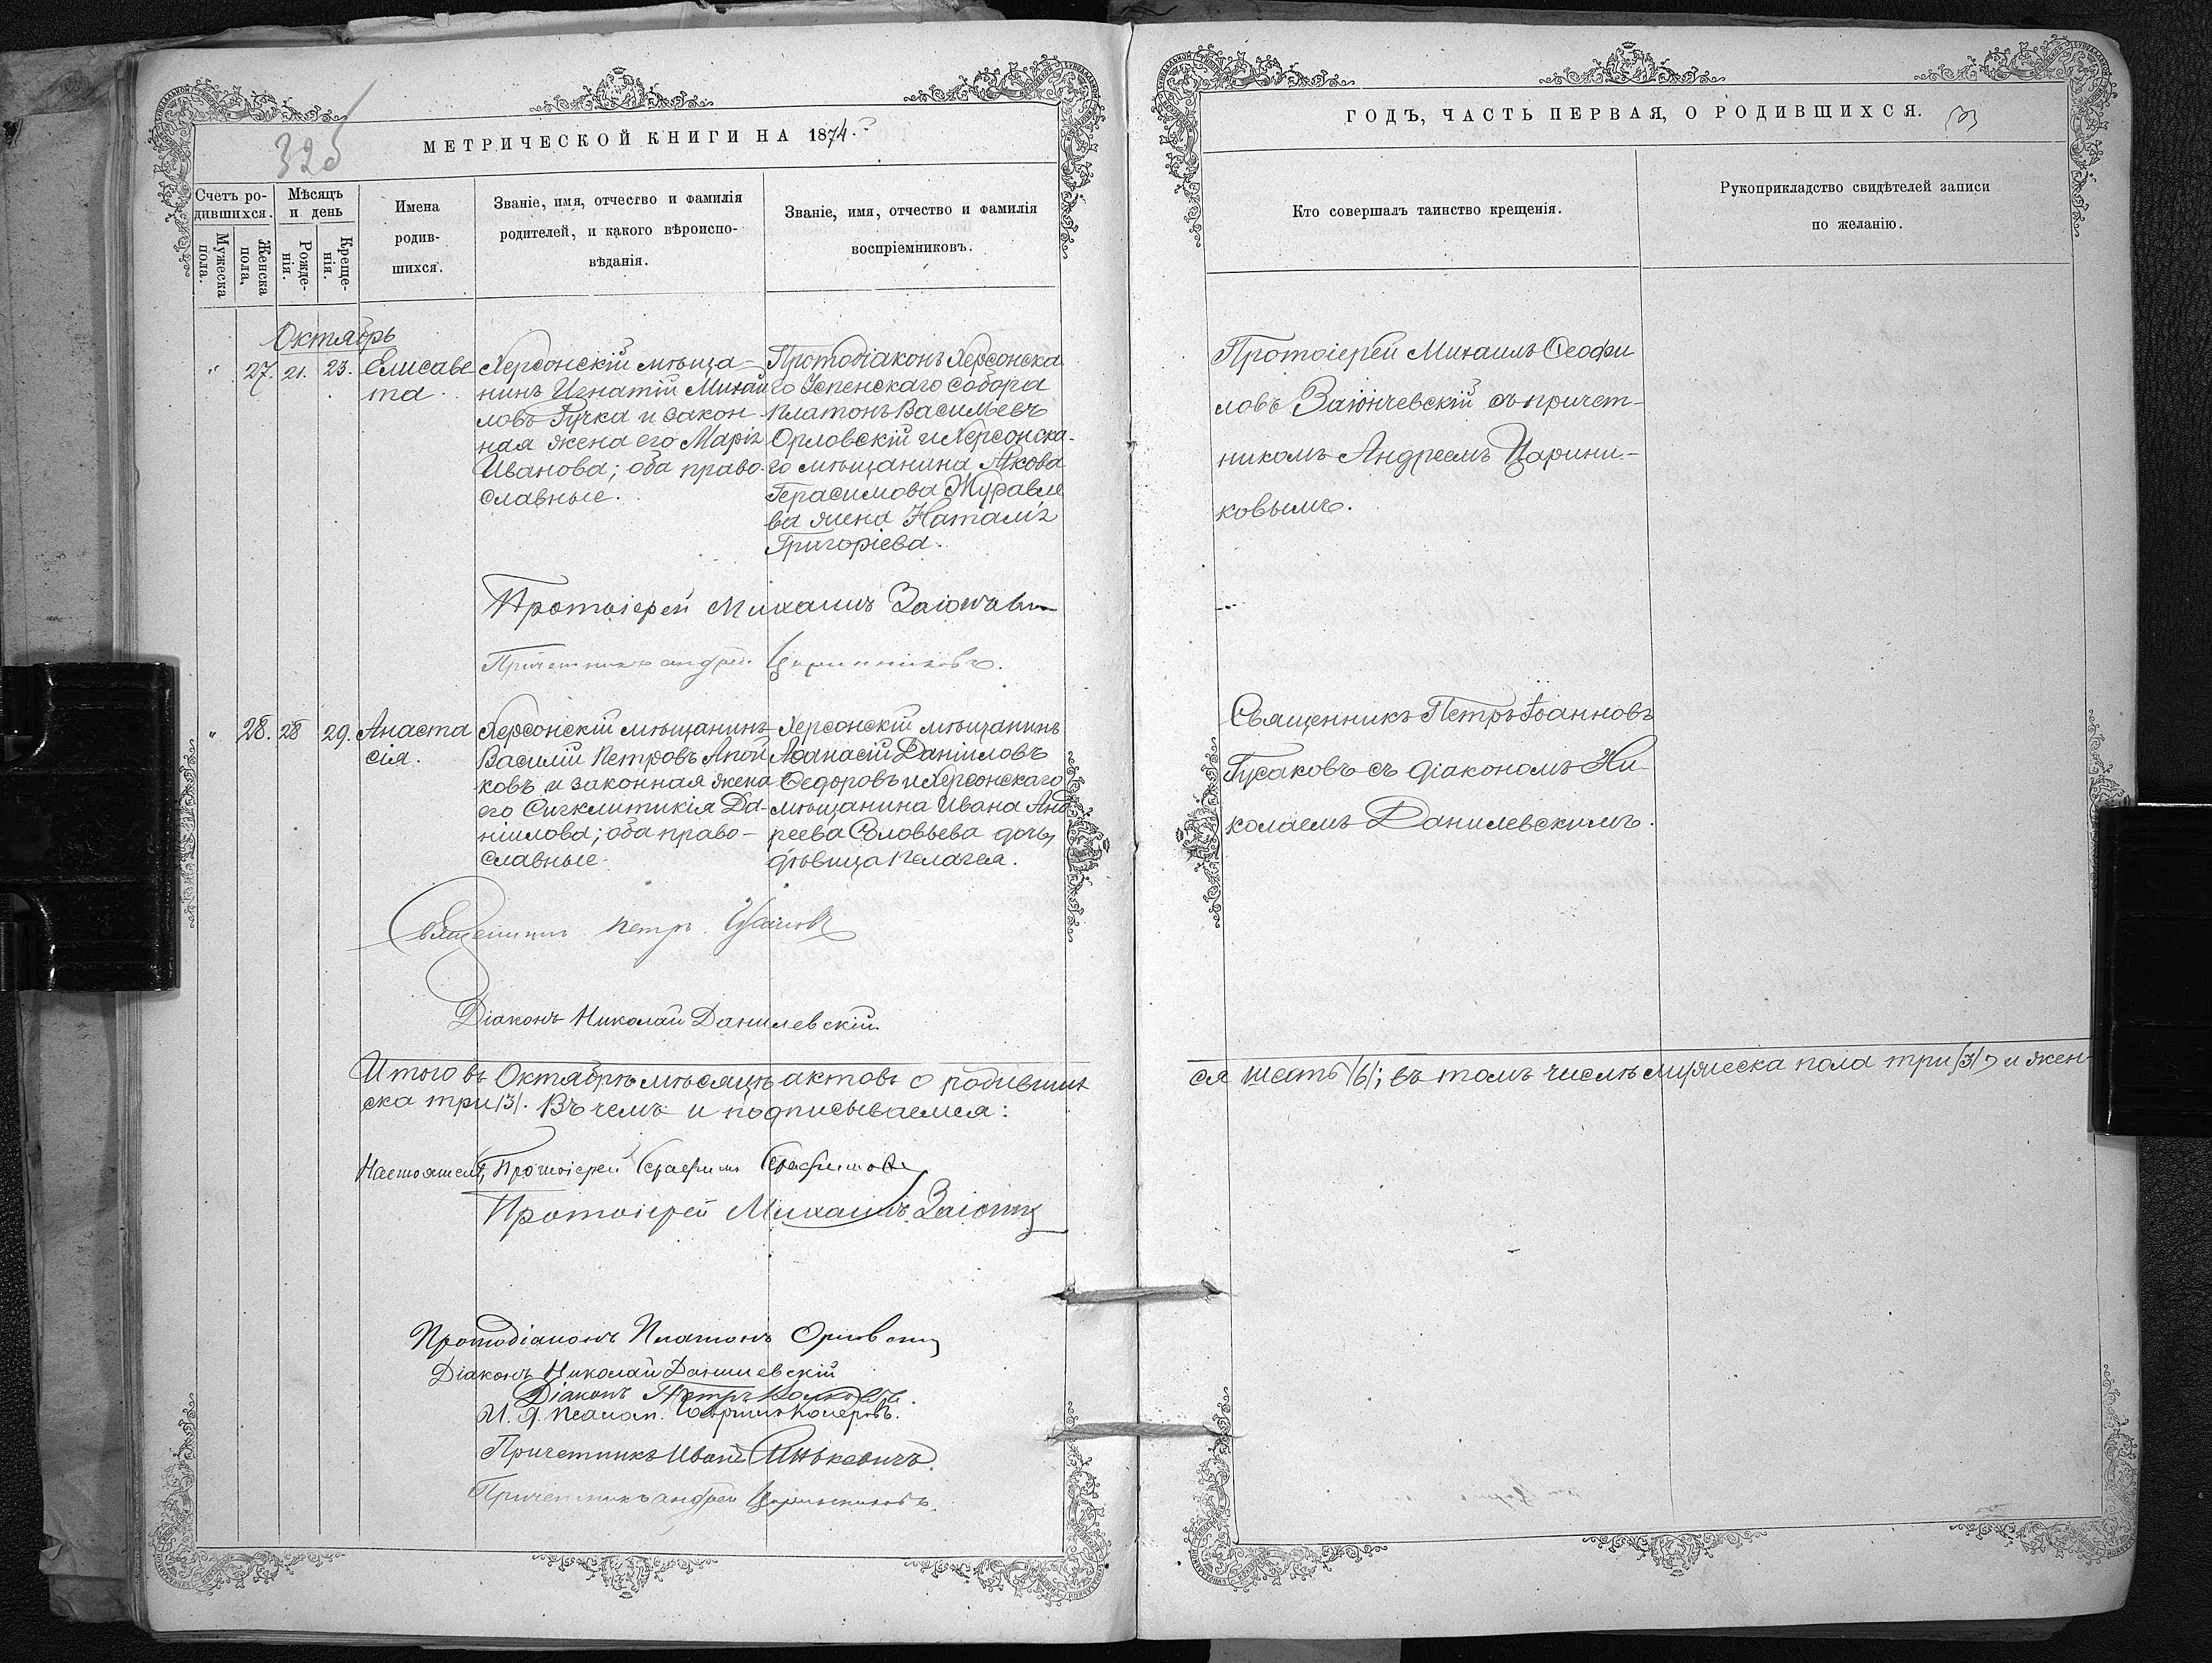 325
МЕТРИЧЕСКОЙ КНИГИ НА 1874.
Счетъ ро-
дившихся.
Мужеска
пола.
Женска
пола.
Мѣсяцъ
и день
Рожде-
нія.
Креще-
нія.
Имена
родив-
шихся.
Званіе, имя, отчество и фамилія
родителей, и какого вѣроиспо-
вѣданія.
Званіе, имя, отчество и фамилія
воспріемниковъ.
Октябрь
" 27. 21. 23.
Елисаве
та
Херсонскій мѣща-
нинъ Игнатій Михай
ловъ Гучка и закон
ная жена его Марія
Иванова; оба право-
славные.
Протодіаконъ Херсонска
го Успенскаго собора
Платонъ Васильевъ
Орловскій и Херсонска-
го мѣщанина Якова
Герасимова Журавле
ва жена Наталія
Григоріева.
Протоіерей Михаилъ
Причетникъ Андрей Царинниковъ.
" 28. 28 29.
Анаста
сія.
Херсонскій мѣщанинъ
Василій Петровъ
ковъ и законная жена
его Сигклитикія Да-
ніилова; оба право-
славные.
Херсонскій мѣщанинъ
Аѳанасій Даніиловъ
Ѳедоровъ и Херсонскаго
мѣщанина Ивана Анд
реева Соловьева дочь,
дѣвица Пелагея.
Священникъ Петръ Гусаковъ
Діаконъ Николай Данилевскій.
Итого въ Октябрѣ мѣсяцѣ актовъ о родивших
ска три /3/. Въ чемъ и подписываемся:
Настоятель, Протоіерей Серафимъ Серафимовъ
Протоіерей Михаилъ
Протодіаконъ Платонъ Орловскій
Діаконъ Николай Данилевскій
Діаконъ Петръ
И. д. псалом.
Причетникъ Иванъ Синькевичъ.
Причетникъ Андрей Царинниковъ.
ГОДЪ, ЧАСТЬ ПЕРВАЯ, О РОДИВШИХСЯ.
Кто совершалъ таинство крещенія.
Рукоприкладство свидѣтелей записи
по желанію.
Протоіерей Михаилъ Ѳеофи
ловъ Заіончевскій съ причет-
никомъ Андреемъ Царинни-
ковымъ.
Священникъ Петръ Іоанновъ
Гусаковъ съ діакономъ Ни
колаемъ Данилевскимъ.
ся шесть /6/; въ томъ числѣ мужеска пола три /3/ и жен-